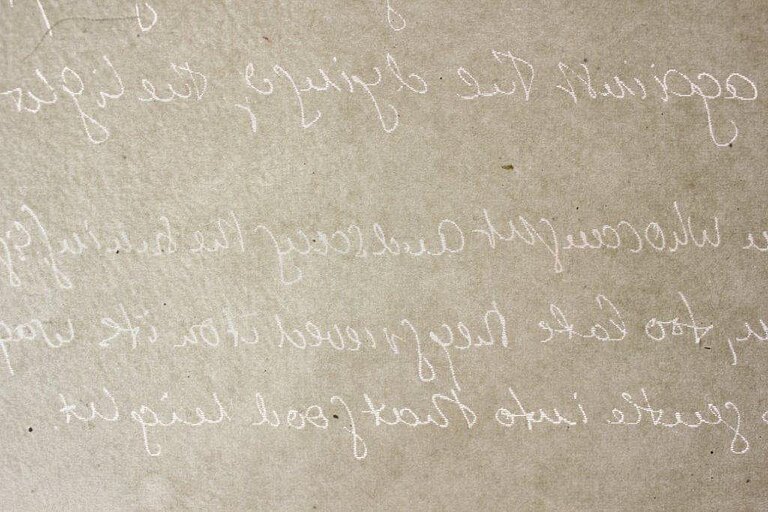 against the dying of the light
who caught and sang the sun in
too late they grieved it on its way
gentle into that good night.